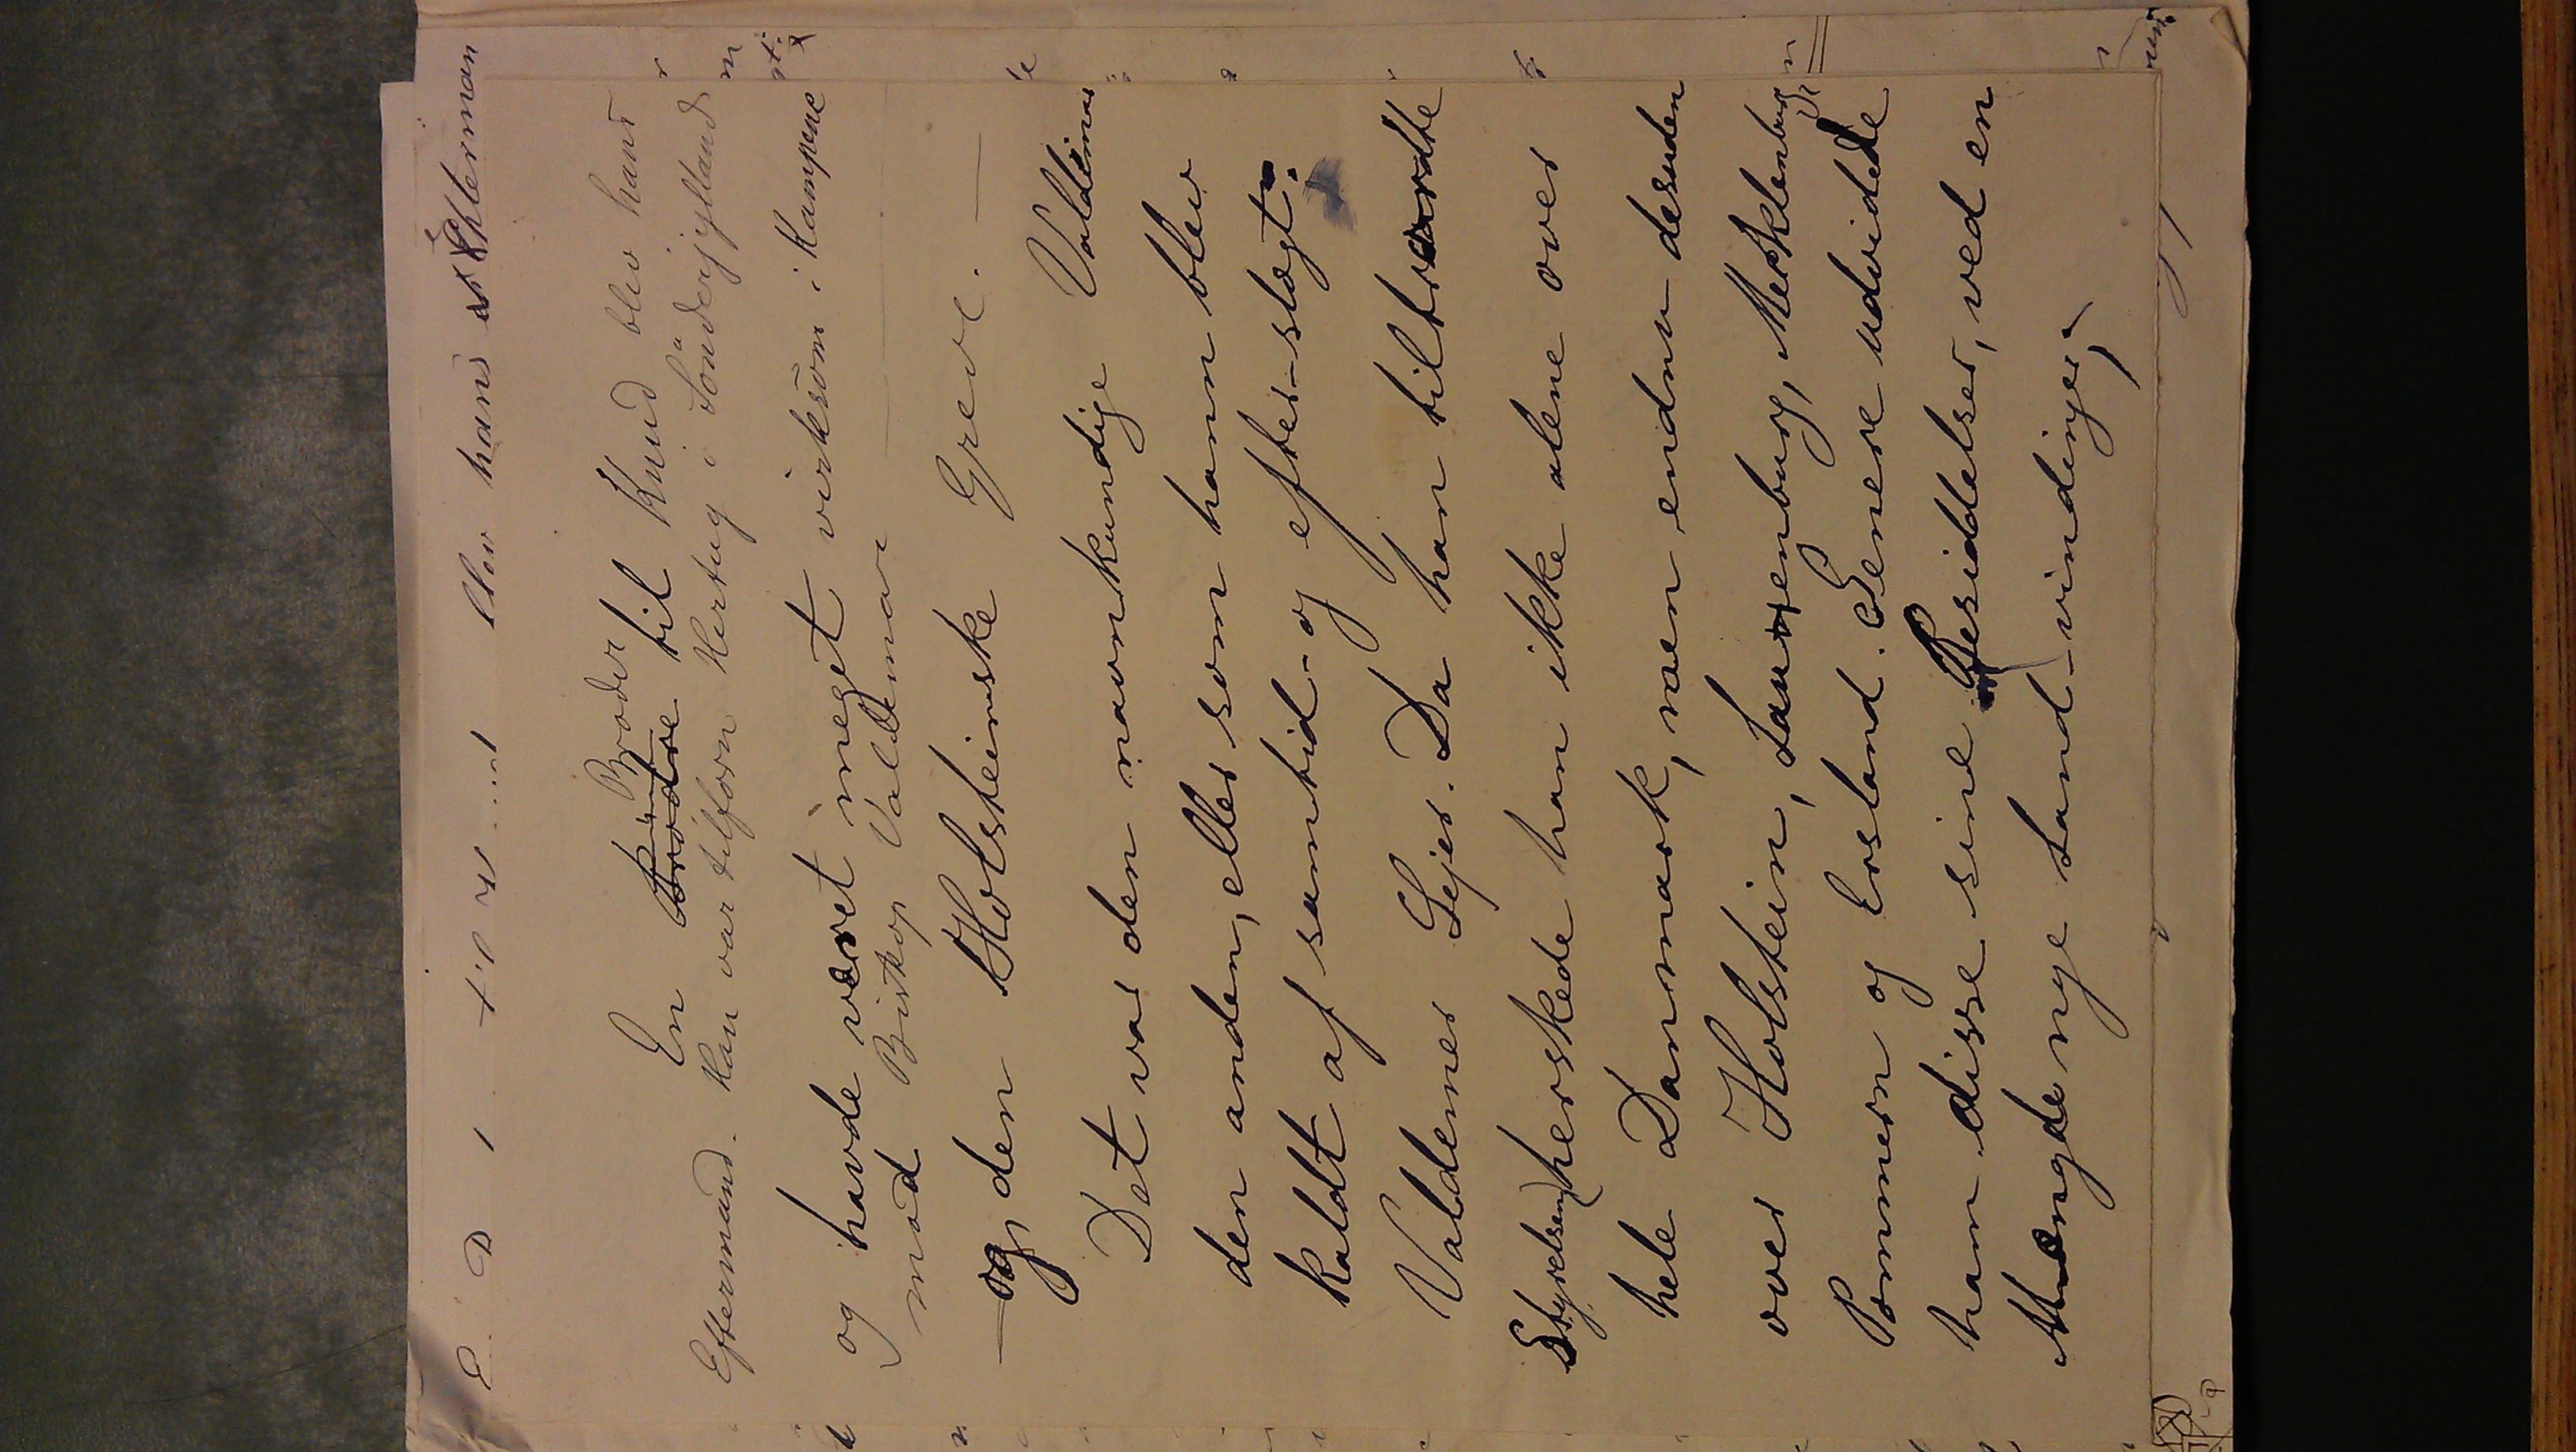 blev hans Efterman
Broder
En Brødre til Knud blev hans
Eftermand. Han var tilforn Hertug i Sønderjylland
og havde været meget virksom i Kampene
mod Biskop Valdemar
og den Holsteinske Greve.
Det var den navnkundige Valdemar
den anden, eller som hann blev
kaldt af samtid- og efter-slægt:
Valdemar Sejer. Da han tiltraadte
Styrelsen, herskede han ikke alene over
hele Danmark, men endnu desuden
over Holstein, Lauenburg, Mecklenburg
Pommern og Estland. Senere udvidede
han disse sine Besiddelser, ved en
Mængde nye Land-vindinger;